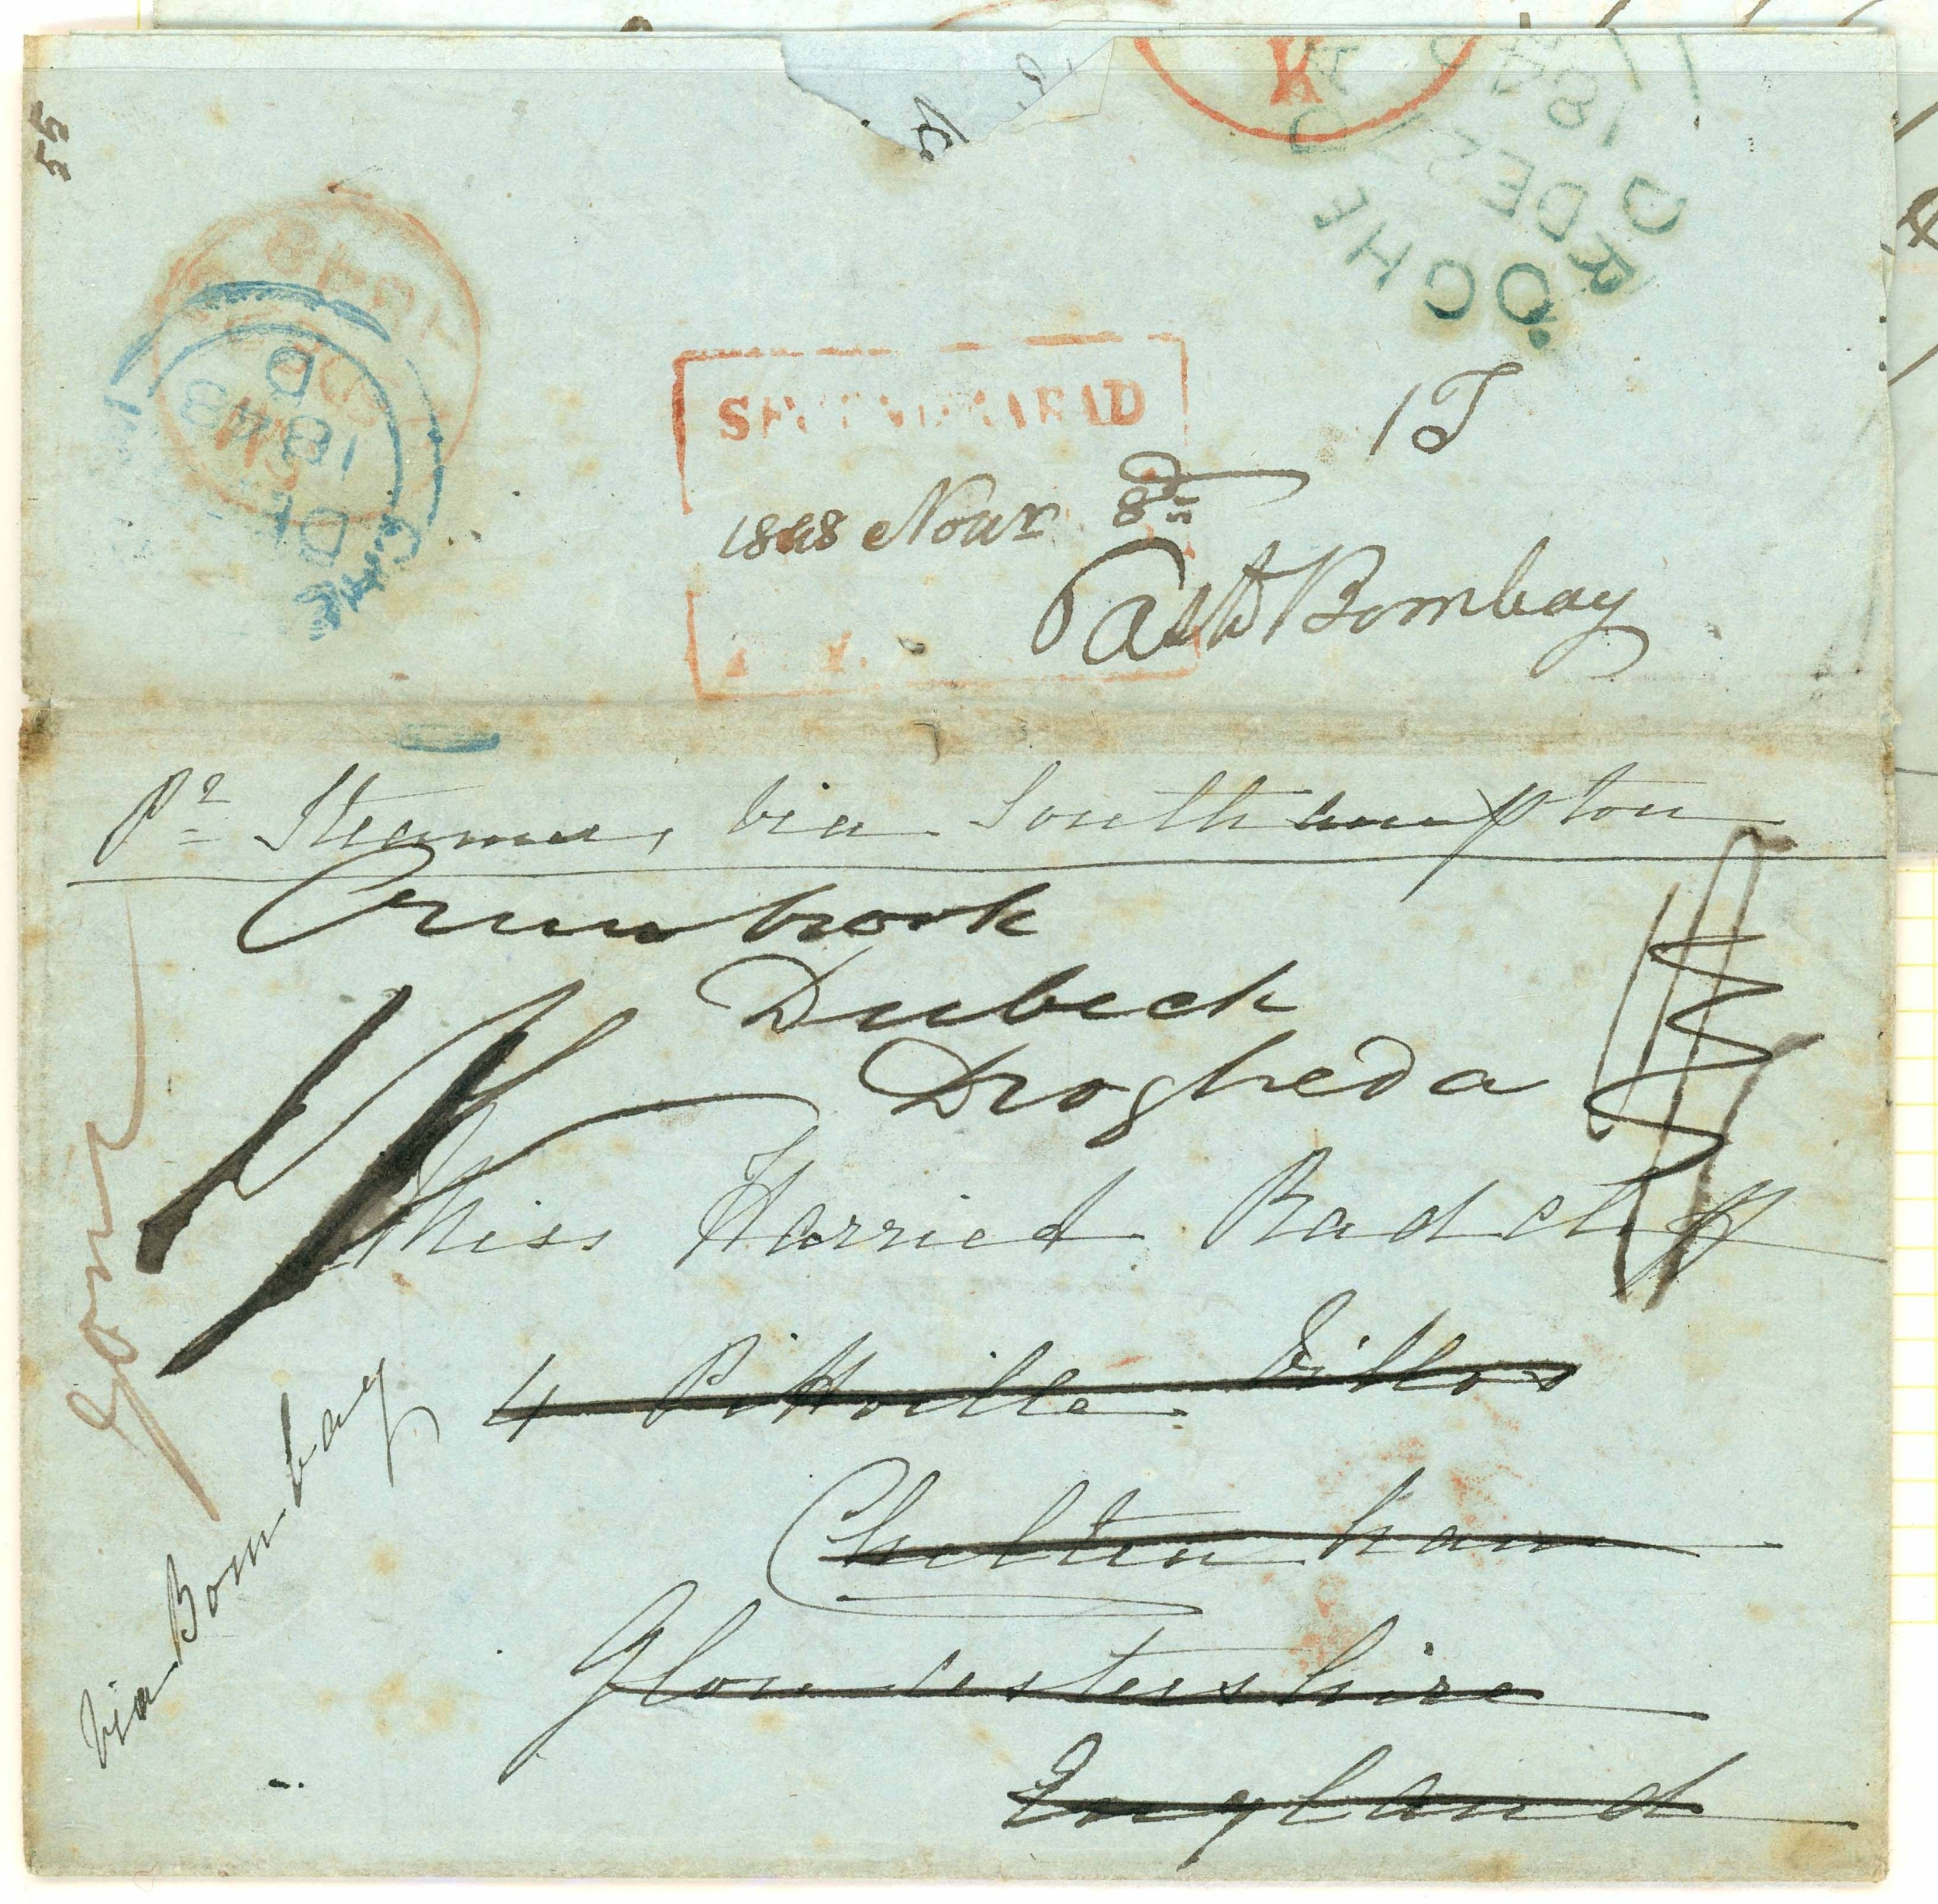 55
K
DROGHEDA
DE
184
1848
D
1848
DE
SECUNDERABAD
1T
1848 Novr 8
Paid Bombay
Pr Steamer, via Southampton
Crumbrook
Dubeck
Drogheda
Miss Harriet Radcliff
4 Pittville Villas
Cheltenham
Gloucestershire
England
via Bombay